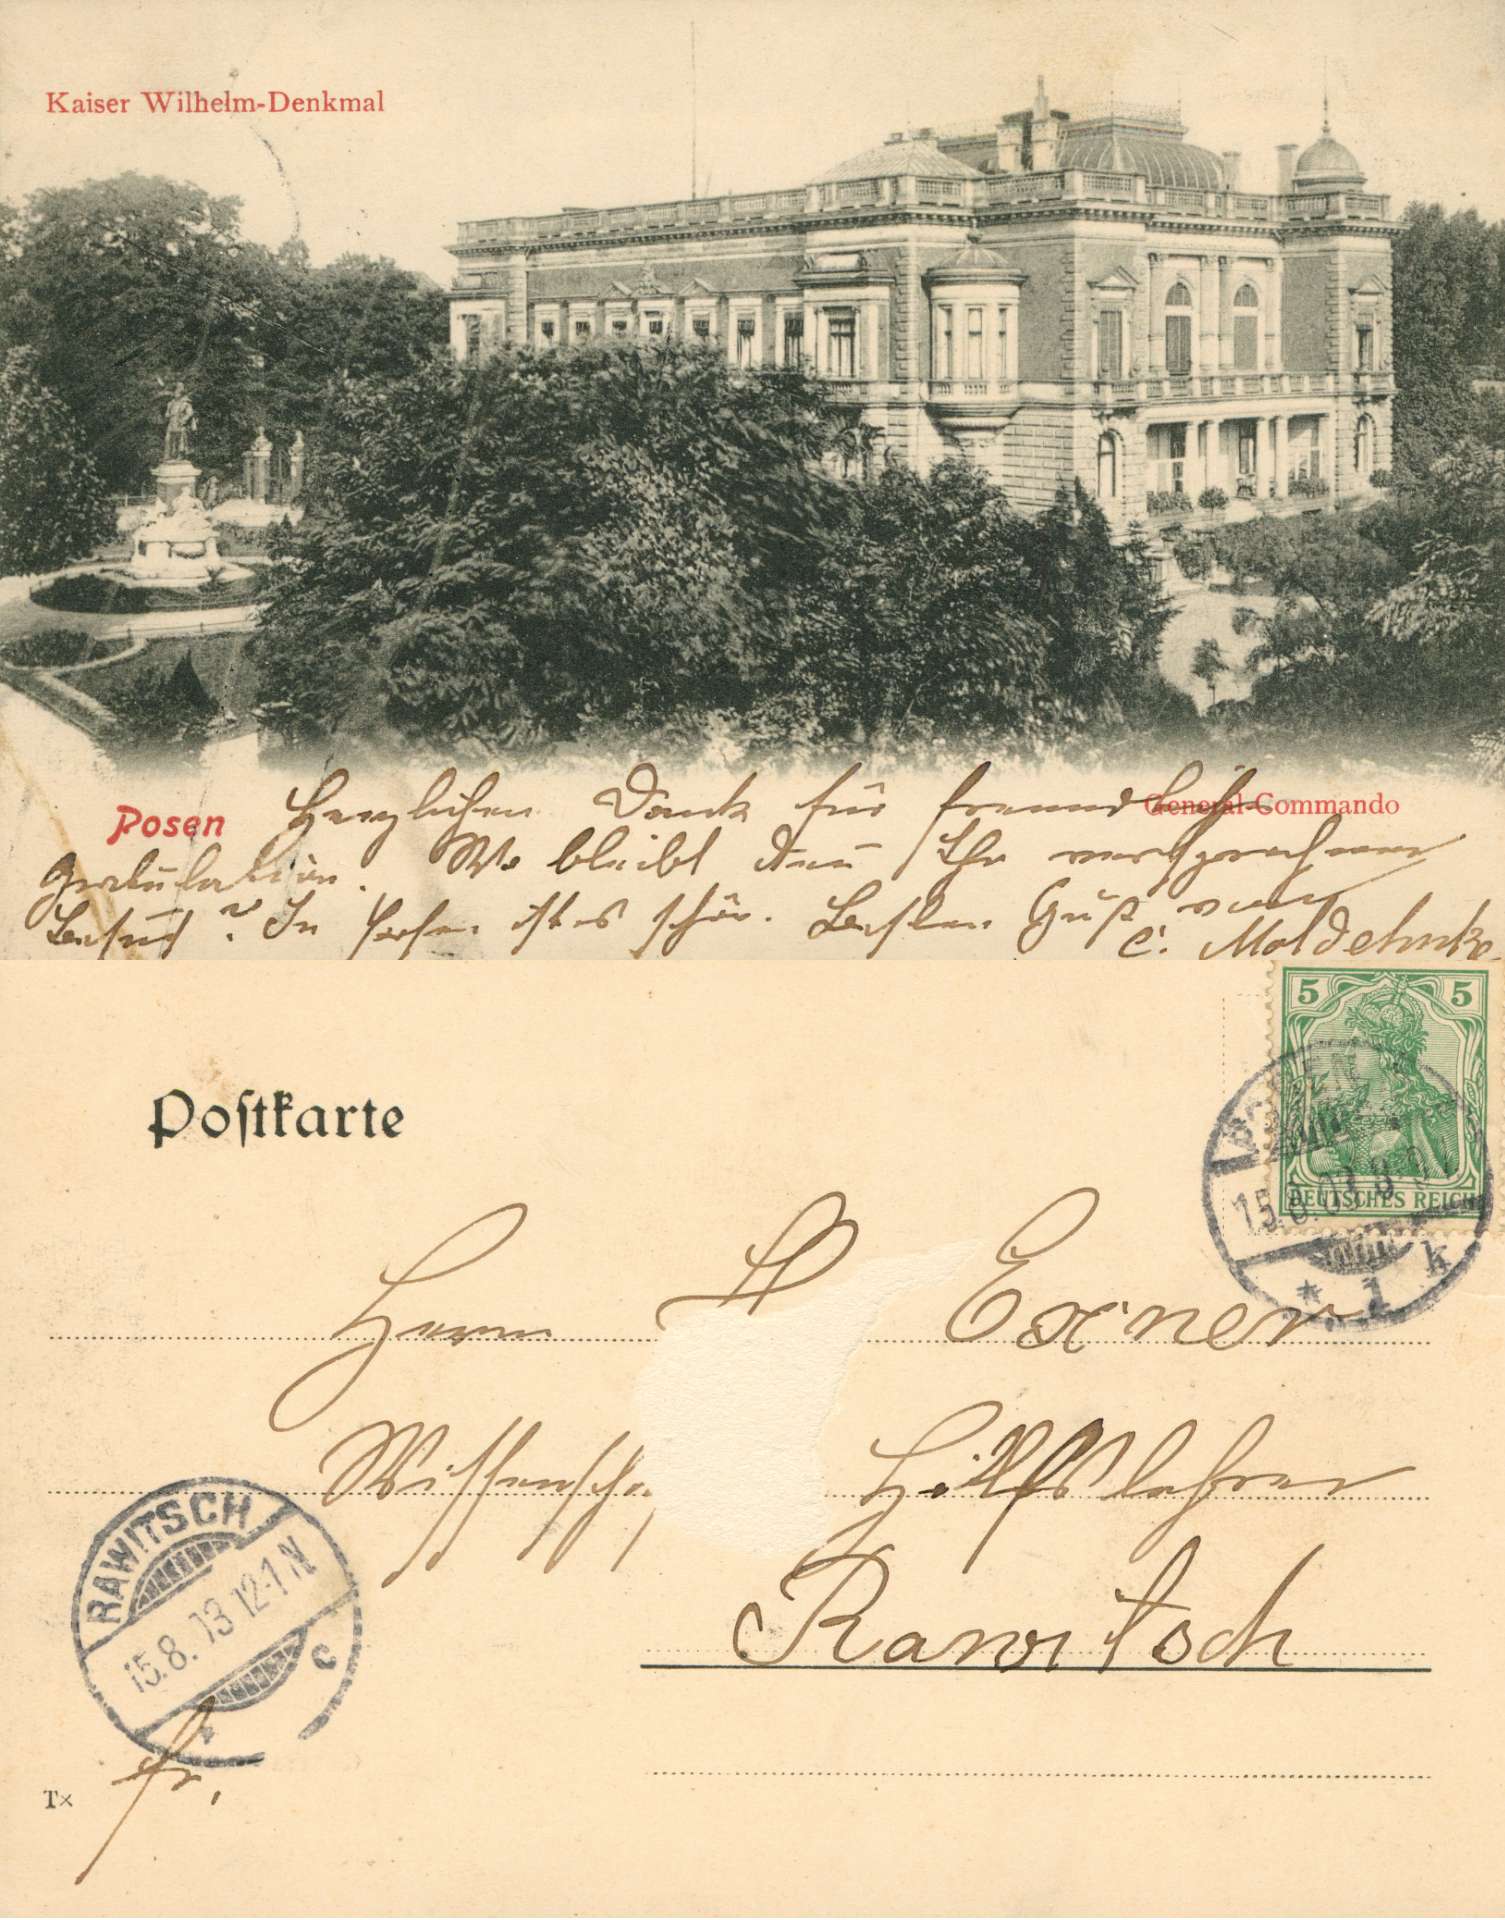 Kaiser Wilhelm-Denkmal
General-Commando
Posen
Herzlichen Dank für freundliche
Gratulation. Wo bleibt denn Ihr versprochener
Besuch? In Posen ist es schön. Besten Gruß von
C. Moldehnke
5 5
DEUTSCHES REICH
POSEN
15.8.03. 8-9 V
* 1 k
Postkarte
Herrn Exner
Hilfslehrer
Rawitsch
RAWITSCH
15.8. 13 12-1 N
c
fr.
T×